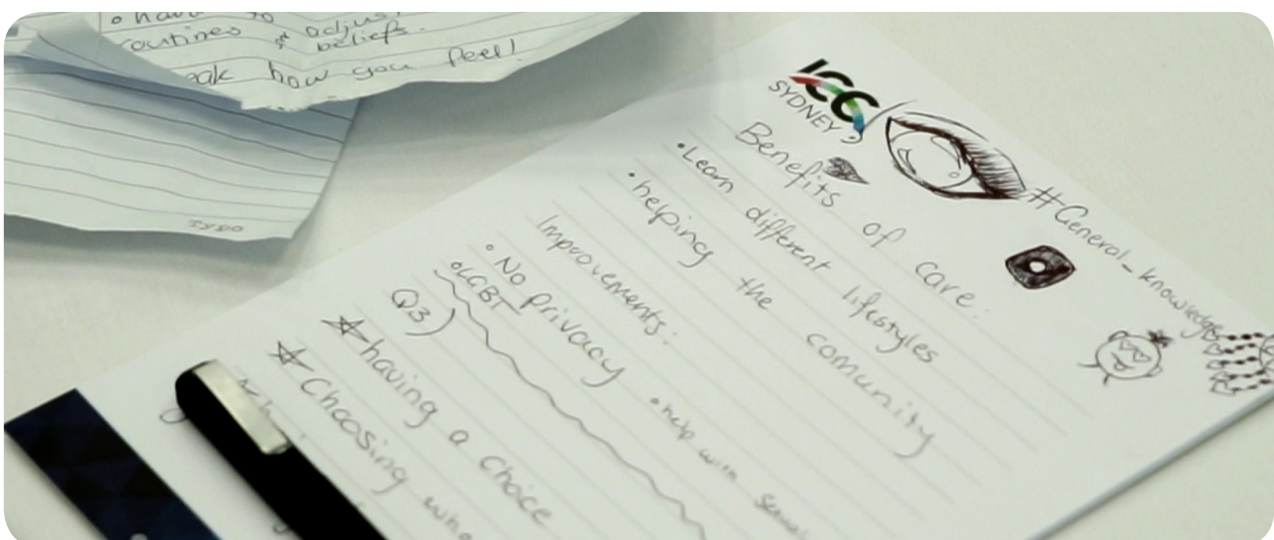 routines & adjust
beliefs.
how you feel!
ICC
SYDNEY
#General_knowledge
Benefits of care:
• Learn different lifestyles
• helping the comunity
Improvements:
• No privacy
• help with
• LGBT
Q3)
☆ having a choice
☆ Choosing